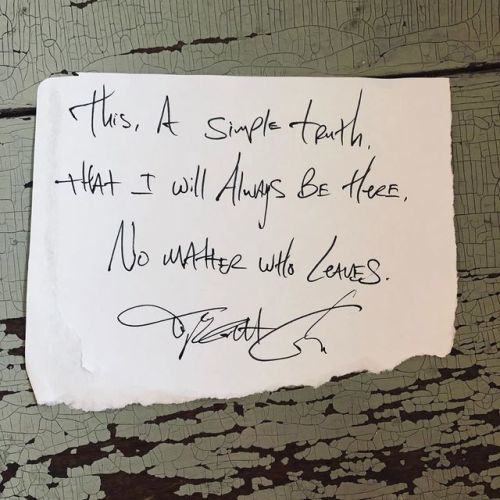 This, A simple truth,
that I will Always Be Here,
No matter who Leaves.